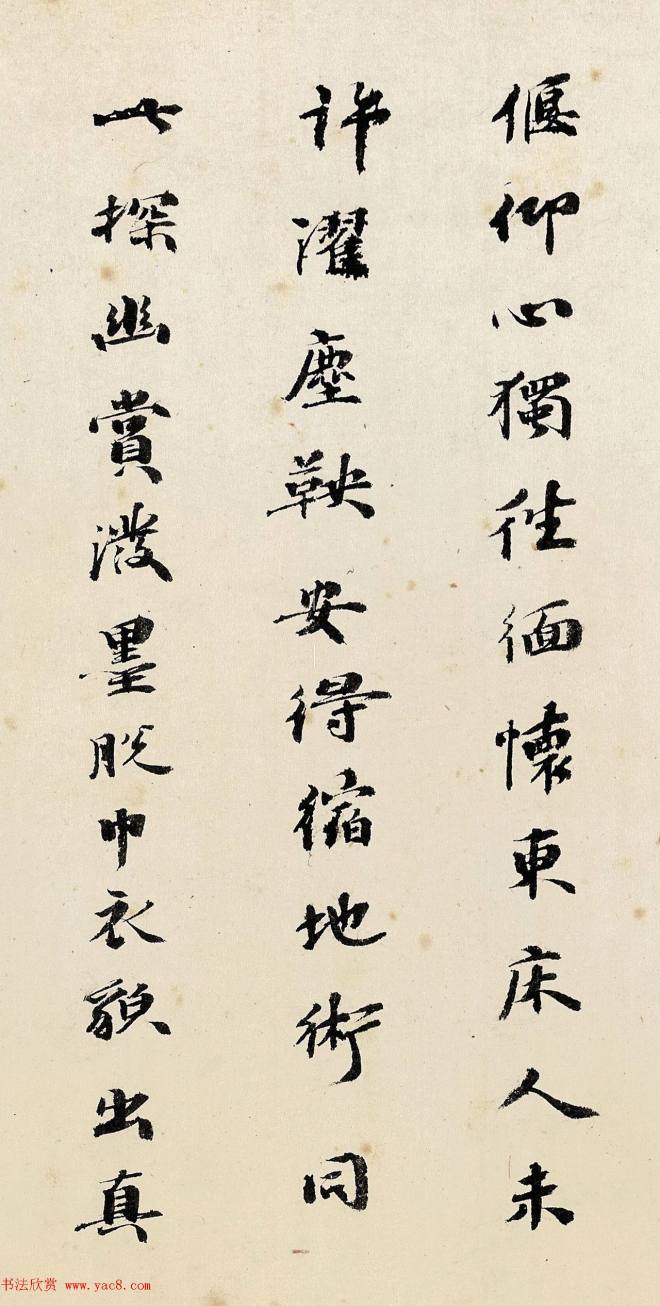 偃仰心獨往緬懷東床人未
許濯塵鞅安得縮地術同
此探幽賞潑墨脫巾衣貌出真
书法欣赏 www.yac8.com